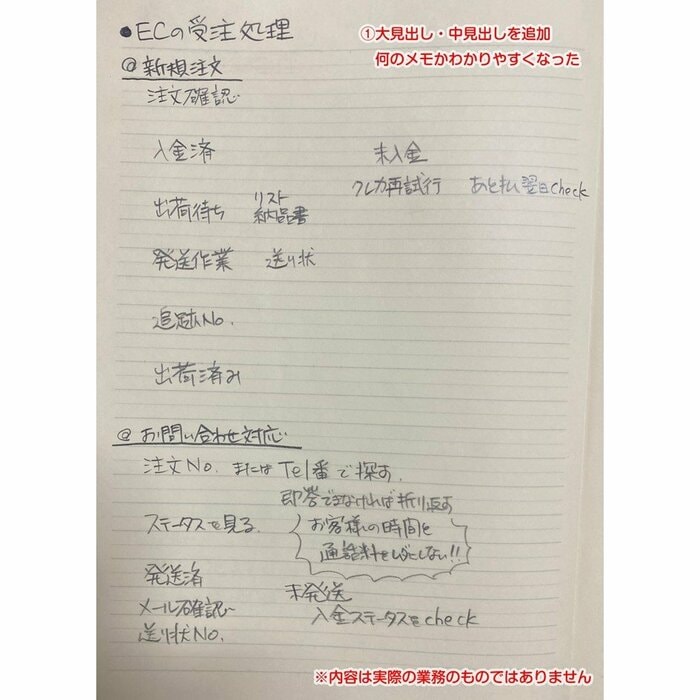 ①大見出し・中見出しを追加
何のメモかわかりやすくなった
●ECの受注処理
@新規注文
注文確認
入金済 未入金
クレカ再試行 あと払い翌日check
出荷待ち リスト
納品書
発送作業 送り状
追跡No.
出荷済み
@お問い合わせ対応
注文No. またはTel番で探す.
即答できなければ折り返す
ステータスを見る
お客様の時間と
通話料をムダにしない!!
発送済 未発送
メール確認 入金ステータスをcheck
送り状No.
※内容は実際の業務のものではありません